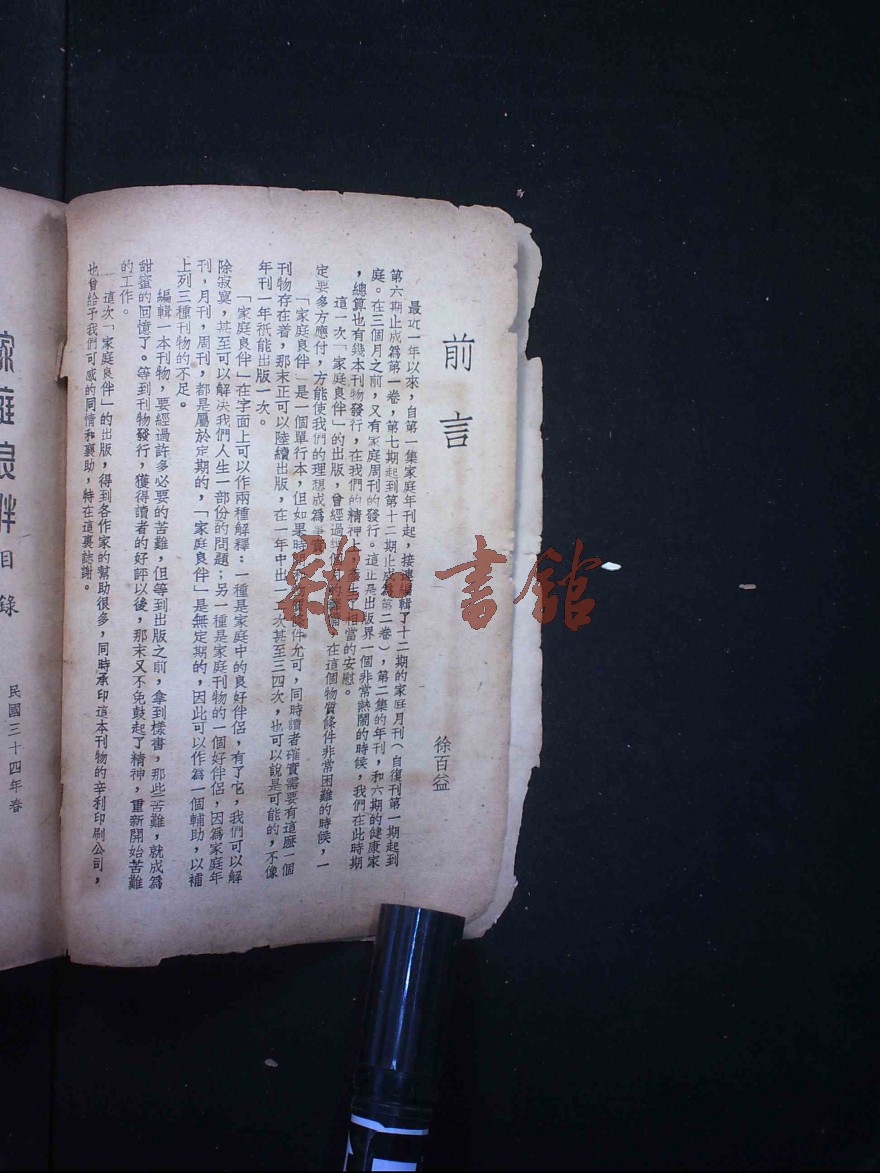 前言
徐百益
最近一年以來，自第一集家庭年刊起，接連編輯了十二期的家庭月刊（自復刊第一期起到
第六期止成爲第一卷，第七期起到第十二期止成爲第二卷），第二集的年刊，和六期的健康家
庭。在三個月之前，又有家庭周刊的發行。這正是出版界一個非常熱鬧的時候，我們在此時期
，總算也有幾本刊物發行，在我們的精神上，產生了相當的安慰。
這一次「家庭良伴」的出版，曾經過 個月的 在這個物質條件非常困難的時候，一
定要多方應付，方能使我們的理想成爲事實。
「家庭良伴」是一個單行本，但如果時 條件允可，同時讀者確實需要有這麼一個
刊物存在着，那末正可以陸續出版，在一年中出一 次甚至三四次，也可以說是可能的，不像
年刊一年祇能出版一次。
「家庭良伴」在字面上可以作兩種解釋：一種是家庭中的良好伴侶，有了它，我們可以解
除寂寞，甚至可以解決我們人生一部份的問題；另一種是家庭刊物的一個好伴侶，因爲家庭年
刊，月刊，周刊，都是屬於定期的，「家庭良伴」是無定期的，因此可以作爲一個輔助，以補
上列三種刊物的不足。
編輯一本刊物，要經過許多必要的苦難，但等到出版之前，拿到樣書，那些苦難，就成爲
甜蜜的回憶了。等到刊物發行，獲得讀者的好評以後，那末又不免鼓起了精神，重新開始苦難
的工作。
這次「家庭良伴」的出版，得到各作家的幫助很多，同時承印這本刊物的辛利印刷公司，
也曾給予我們可感的同情和襄助，特在這裏誌謝。
家庭良伴目錄
民國三十四年春
雜·書館